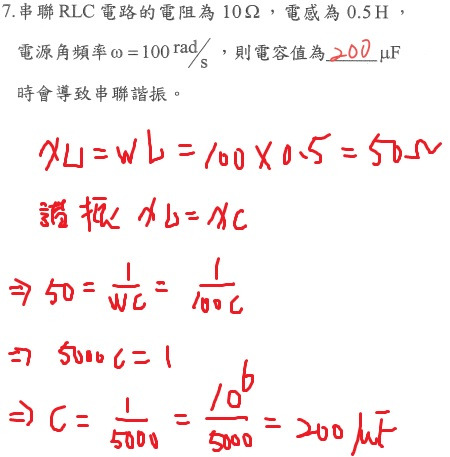 7.串聯RLC電路的電阻為 10Ω，電感為 0.5H，
電源角頻率ω=100 rad/s，則電容值為 200 μF
時會導致串聯諧振。
XL = WL = 100 X 0.5 = 50Ω
諧振 XL = XC
⇒ 50 = 1/WC = 1/100C
⇒ 5000C = 1
⇒ C = 1/5000 = 10^6/5000 = 200 μF